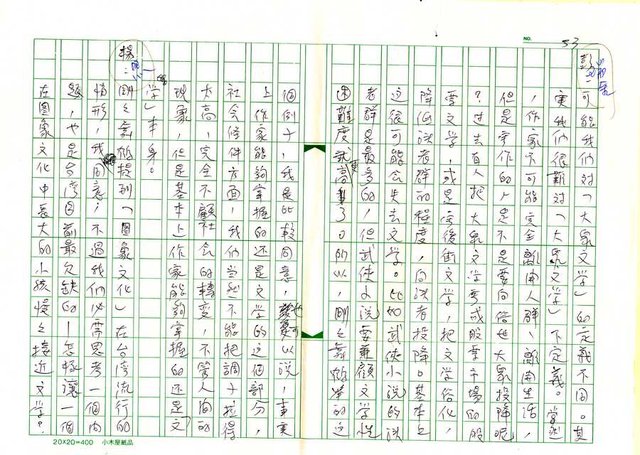 53
彭：可能我們對「大眾文學」的定義不同。其
實我們很難對「大眾文學」下定義。當然
，作家不可能完全離開人群、離開生活，
但是，寫作的人是不是要向俗世大眾投降呢
？過去有人把大眾文學看成股票市場的股
票文學，或是後街文學，把文學俗化，
降低讀者群的程度，向讀者投降。基本上
這很可能會失去文學。比如武俠小說的讀
者群是最多的，但武俠小說要兼顧文學性
困難度就更高了。所以，剛才舞鶴舉的這
個例子，我是比較同意，也可以說，事實
上作家能夠掌握的還是文學的這個部分，
社會條件方面，我們當然不能把調子找得
太高，完全不顧社會的轉變，不管人間的
現象，但是基本上作家能夠掌握的還是「文
學」本身。
楊：剛才舞鶴提到「圖象文化」在台灣流行的
情形，我同意，不過我們必需思考一個問
題，也是台灣目前最欠缺的—怎樣讓一個
在圖象文化中長大的小孩慢慢接近文學？
NO.
20X20=400 小木屋紙品